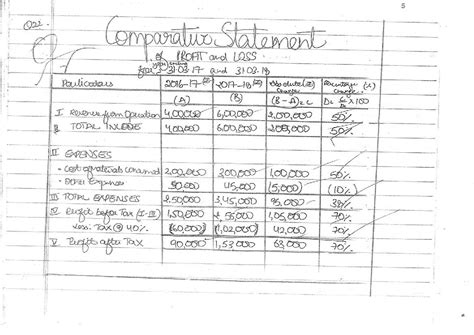 5
Q2:-
Comparative Statement
of PROFIT and LOSS
31.03.17 and 31.03.18
Particulars 2016-17(₹) 2017-18(₹) Absolute(₹) Change Percentage (%) Change
(A) (B) (B-A)=C D= C/A ×100
I Revenue from Operation 4,00,000 6,00,000 2,00,000 50%
II TOTAL INCOME 4,00,000 6,00,000 2,00,000 50%
II EXPENSES
• Cost of materials consumed 2,00,000 3,00,000 1,00,000 50%
• Other Expenses 50,000 45,000 (5,000) (10%)
III TOTAL EXPENSES 2,50,000 3,45,000 95,000 38%
IV Profit before Tax (I-III) 1,50,000 2,55,000 1,05,000 70%
Less: Tax @ 40% (60,000) (1,02,000) 42,000 70%
V Profit after TAX 90,000 1,53,000 63,000 70%